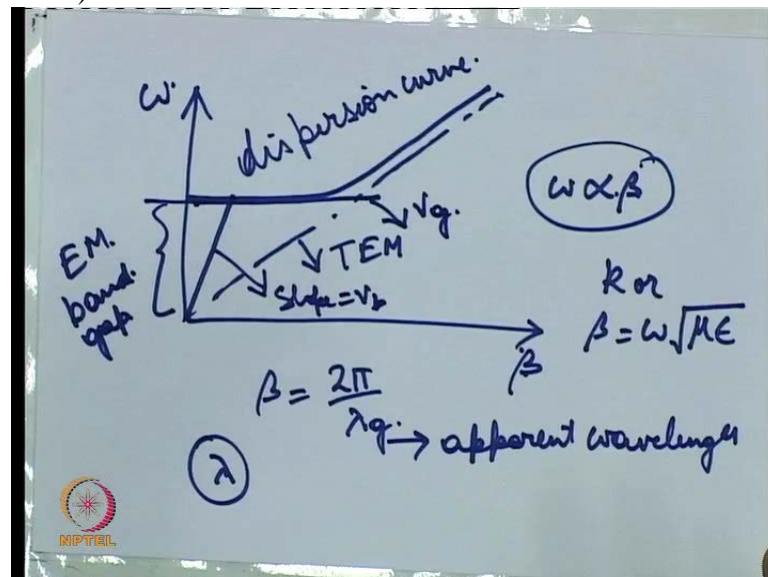 ω.
dispersion curve.
ω ∝ β
vg.
EM.
band.
gap
TEM
slope = vp
k or
β = ω√με
β
β = 2π/λg. → apparent wavelength
λ
NPTEL